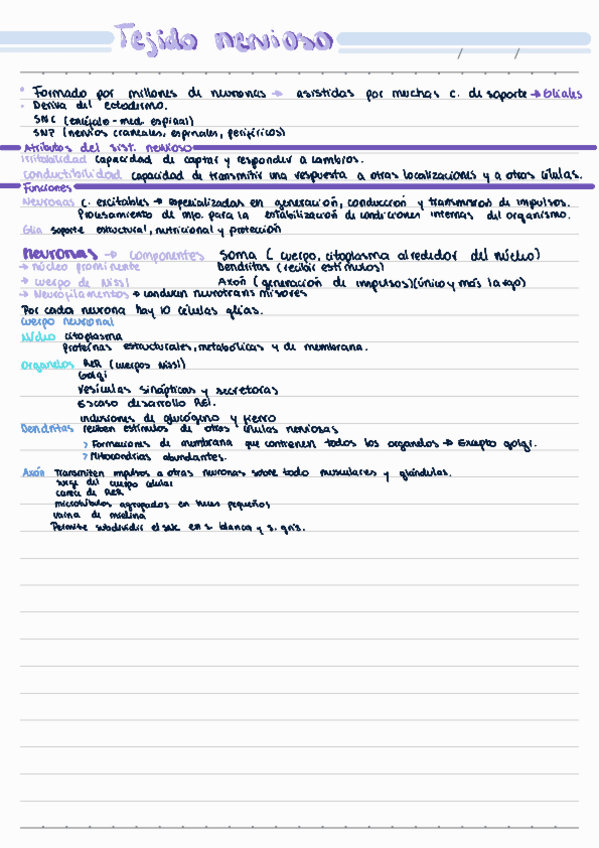 Tejido nervioso
/ /
Formado por millones de neuronas → asistidas por muchas c. de soporte → Gliales
Deriva del ectodermo.
SNC (encéfalo - med. espinal)
SNP (nervios craneales, espinales, periféricos)
Atributos del sist. nervioso
irritabilidad capacidad de captar y responder a cambios.
conductibilidad capacidad de transmitir una respuesta a otras localizaciones y a otras células.
Funciones
Neuronas c. excitables → especializadas en generación, conducción y transmisión de impulsos.
Procesamiento de info. para la estabilización de condiciones internas del organismo.
Glia soporte estructural, nutricional y protección
Neuronas → componentes soma ( cuerpo, citoplasma alrededor del núcleo)
→ núcleo prominente Dendritas (recibir estímulos)
→ cuerpo de Nissl Axón (generación de impulsos)(único y más largo)
→ Neurofilamentos → conducen neurotransmisores
Por cada neurona hay 10 células glías.
cuerpo neuronal
Núcleo citoplasma
Proteínas estructurales, metabólicas y de membrana.
Organelos RER (cuerpos Nissl)
Golgi
vesículas sinápticas y secretoras
Escaso desarrollo REL.
inclusiones de glucógeno y hierro
Dendritas reciben estímulos de otras células nerviosas
> Formaciones de membrana que contienen todos los organelos → Excepto golgi.
> Mitocondrias abundantes.
Axón Transmiten impulsos a otras neuronas sobre todo musculares y glándulas.
surge del cuerpo celular
carece de RER
microtúbulos agrupados en haces pequeños
vaina de mielina
Permite subdividir el snc en s. blanca y s. gris.